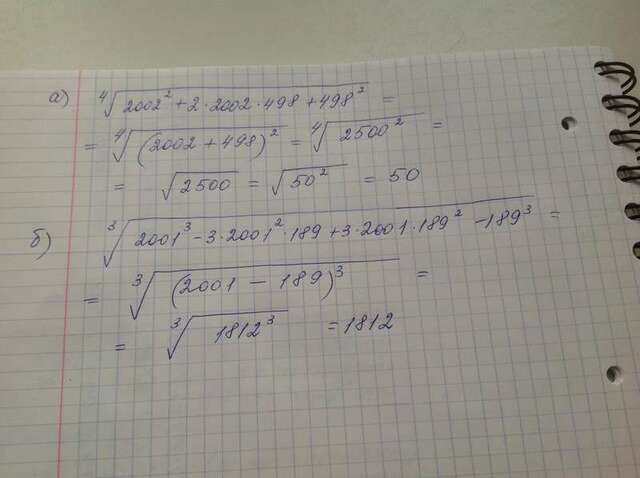 а) ∜(2002² + 2·2002·498 + 498²) =
= ∜((2002 + 498)²) = ∜(2500²) =
= √2500 = √(50²) = 50
б) ∛(2001³ - 3·2001²·189 + 3·2001·189² - 189³) =
= ∛((2001 - 189)³) =
= ∛(1812³) = 1812